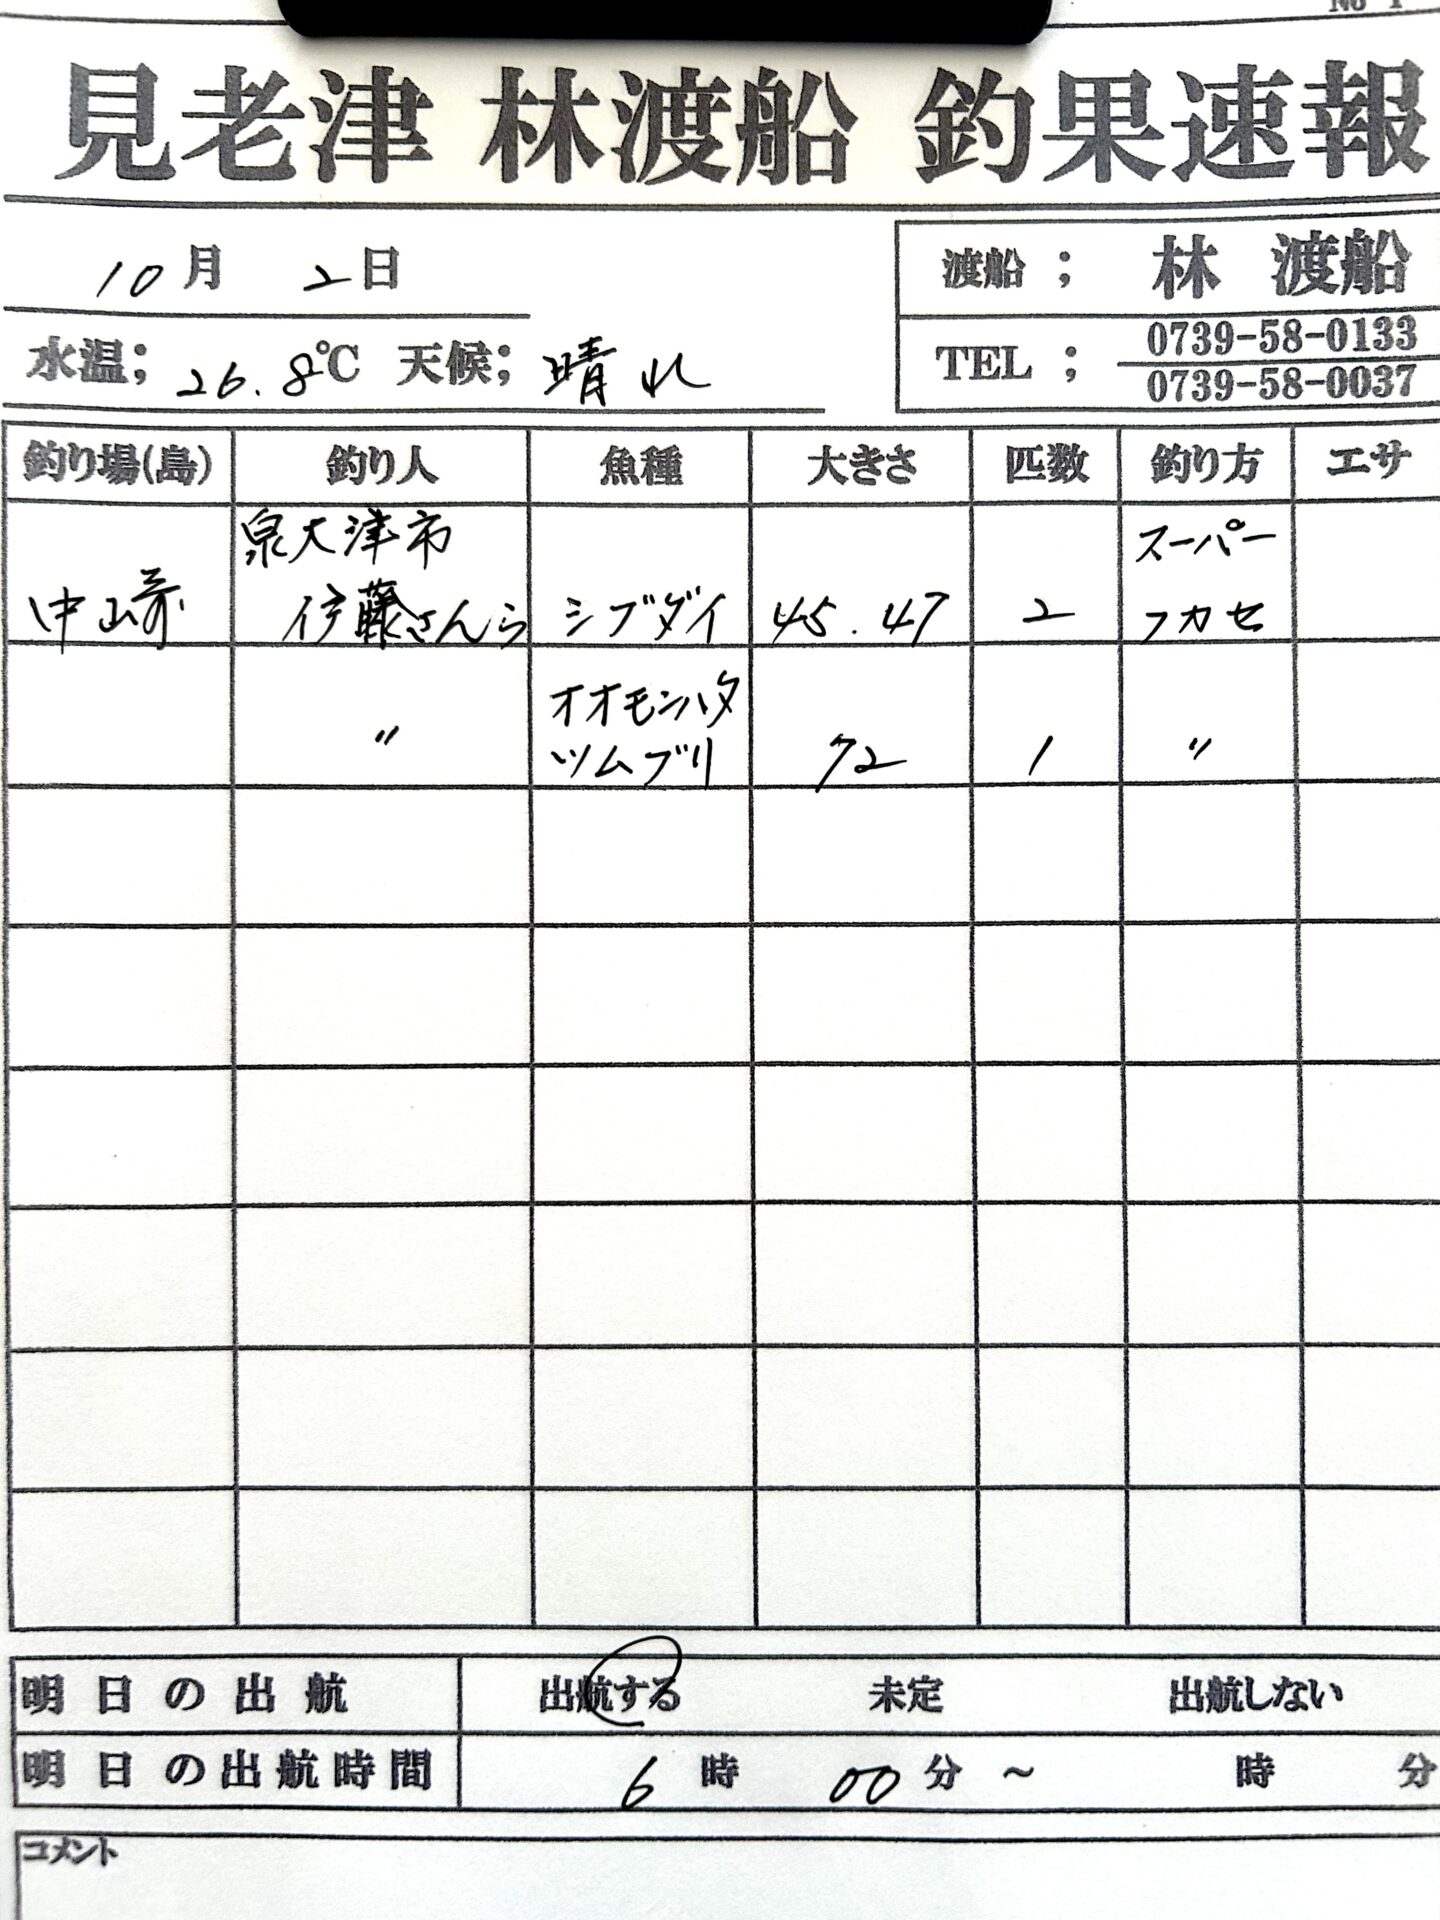 No 1
見老津 林渡船 釣果速報
10月 2日
渡船 ; 林 渡船
水温; 26.8℃ 天候; 晴れ
TEL ; 0739-58-0133
0739-58-0037
釣り場(島) 釣り人 魚種 大きさ 匹数 釣り方 エサ
泉大津市 スーパー
中崎 伊藤さんら シブダイ 45.47 2 フカセ
オオモンハタ
〃 ツムブリ 72 1 〃
明日の出航 出航する 未定 出航しない
明日の出航時間 6時 00分 ~ 時 分
コメント